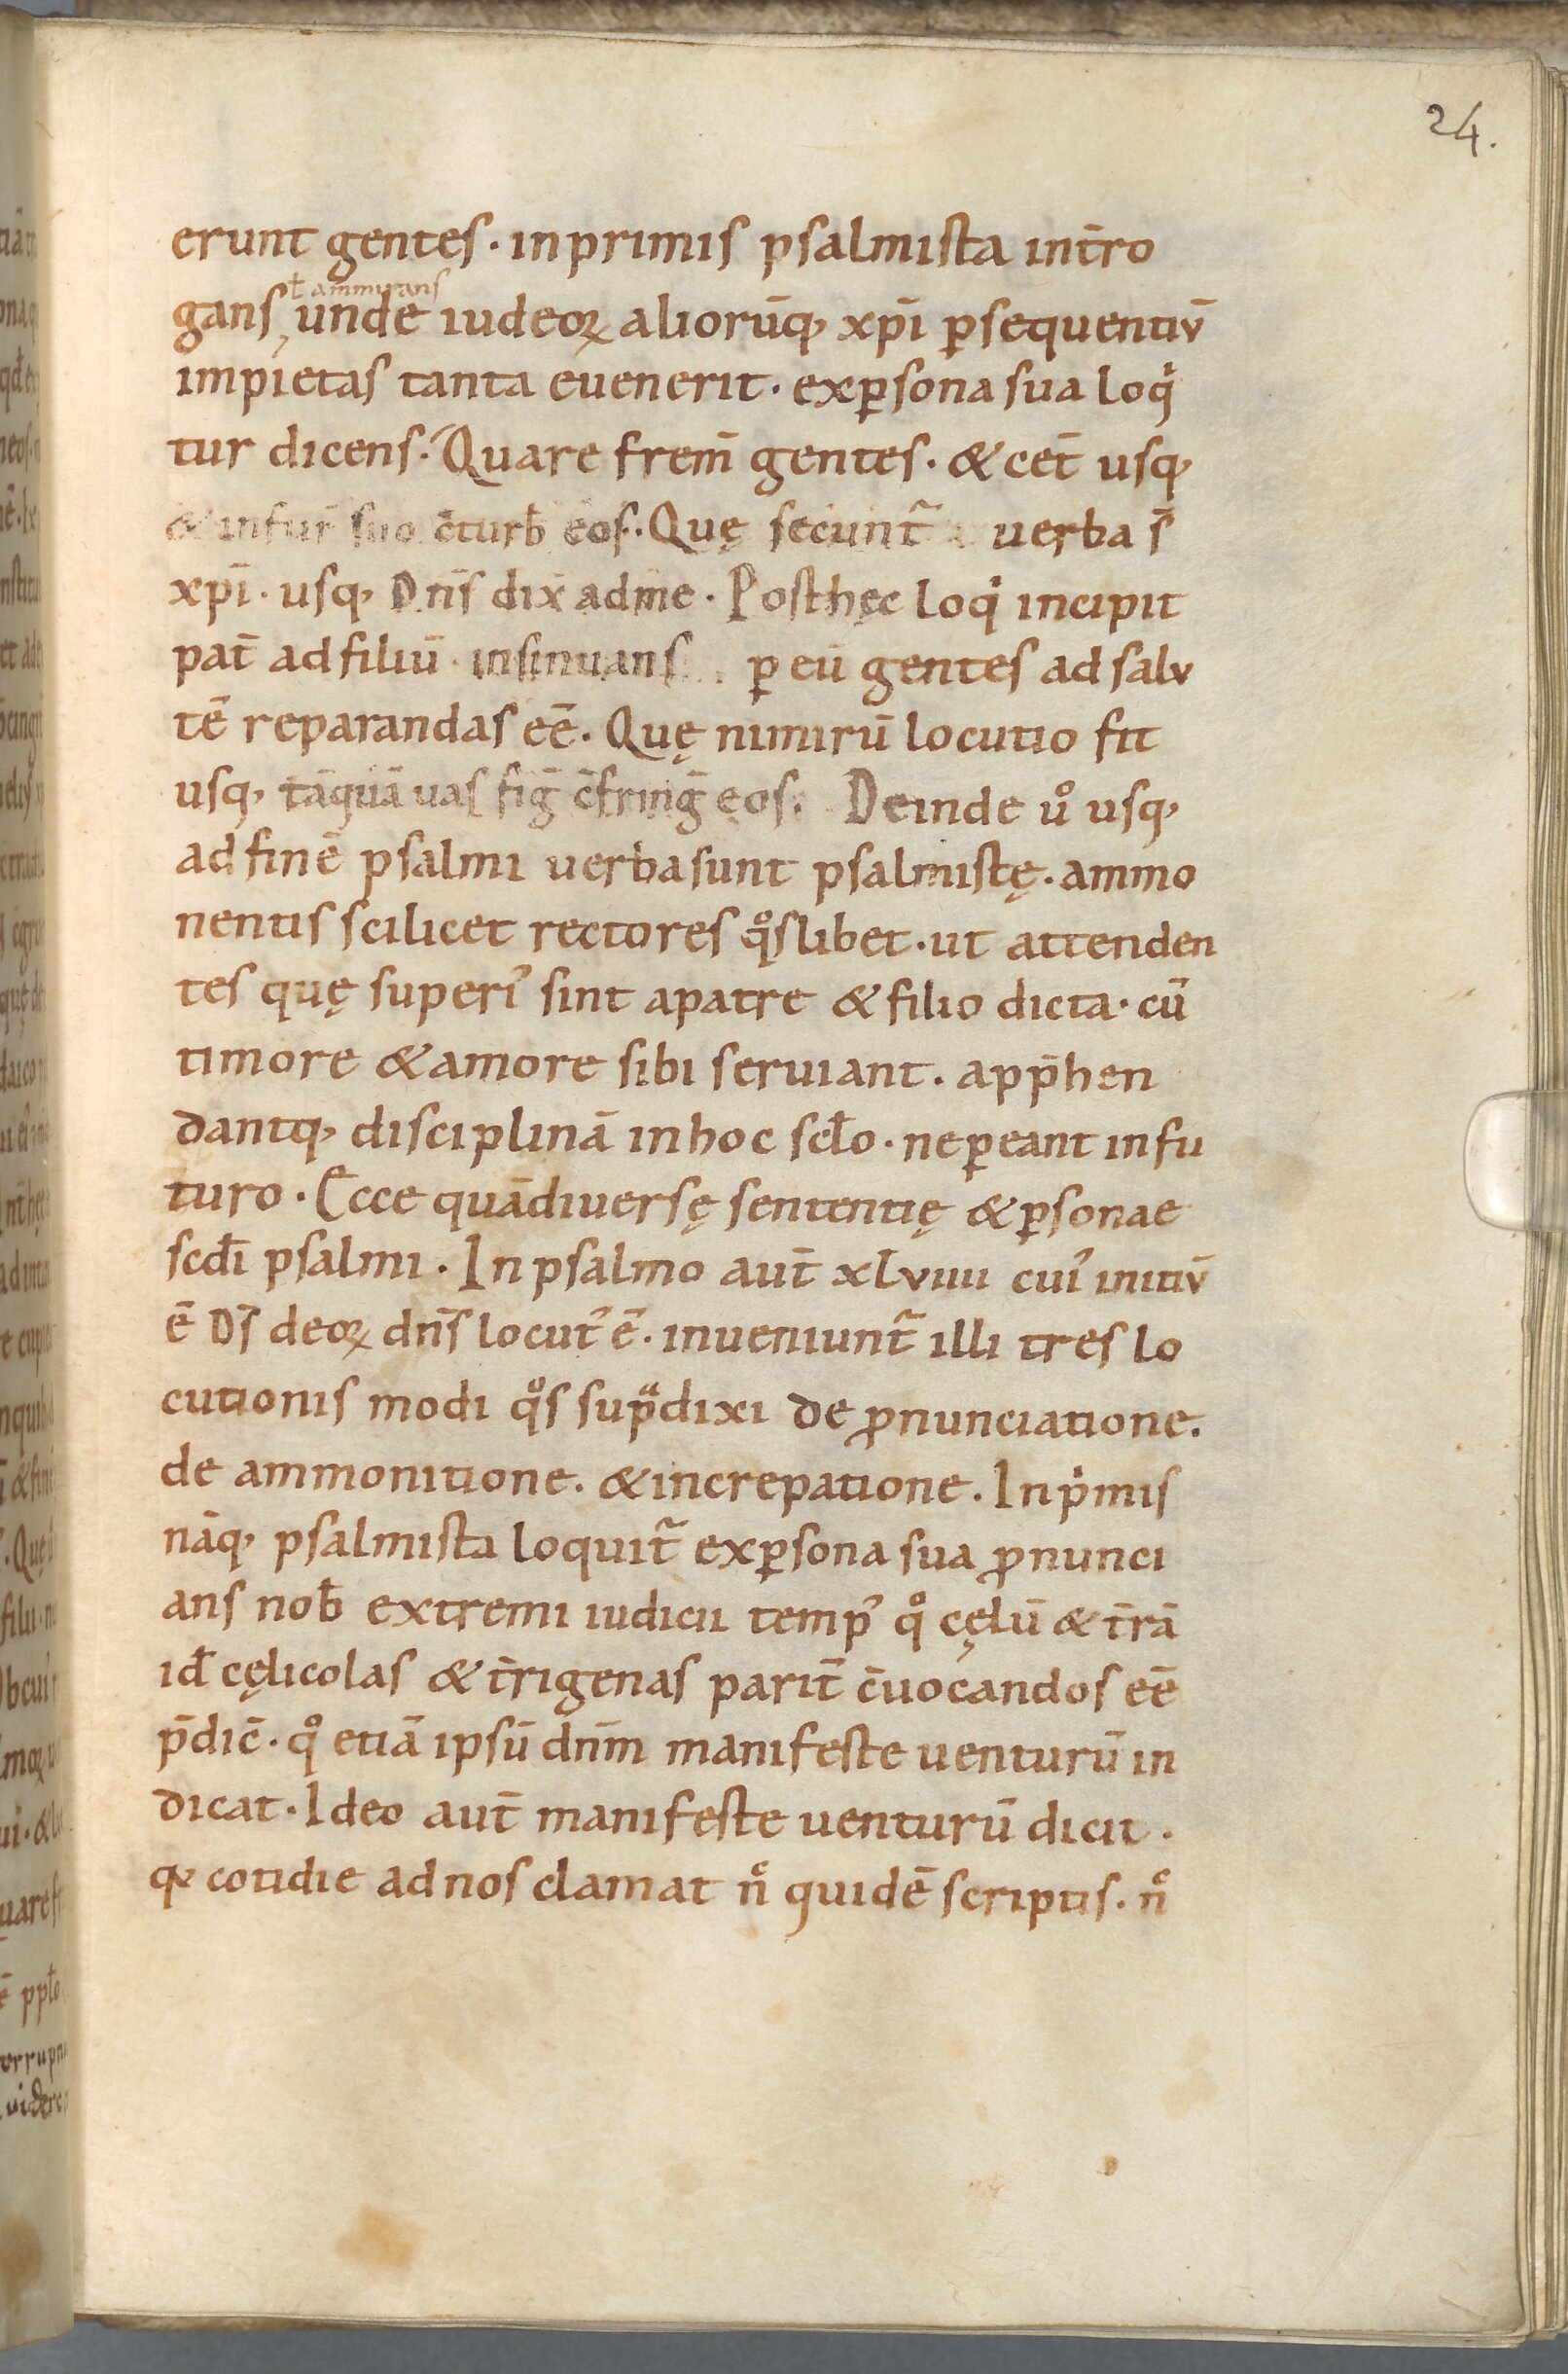 24.
erunt gentes · inprimis psalmista int̄ro
ł ammirans
gans, unde iudeoꝝ aliorūq, xp̄i ꝑsequentiv̄
impietas tanta euenerit · exꝑsona sua loqͥ
tur dicens · Quare frem̄ gentes · & cet̄ usq,
& infur̄ suo c̄turb̄ eos · Quę secunt᷑ uerba s̄
xp̄i · usq, Dn̄s dix̄ adme · Posthęc loqͥ incipit
pat̄ adfiliū · insinuans ꝑ eū gentes ad salv
tē reparandas eē̄ · Quę nimirū locutio fit
usq, tāquā uas fiḡ c̄frinḡ eos · Deinde uͦ usq,
adfinē psalmi uerbasunt psalmistę · ammo
nentis scilicet rectores qͦslibet · ut attenden
tes quę superi᾽ sint apatre & filio dicta · cū
timore & amore sibi seruiant · app̄hen
dantq, disciplinā inhoc scło · neꝑeant infu
turo · Ecce quādiuersę sententię & ꝑsonae
scdi̅ psalmi · Inpsalmo aut̄ xlviiii cui᾽ initiv̄
ē Ds̄ deoꝝ dn̄s locut᾽ ē · inueniunt᷑ illi tres lo
cutionis modi qͦs sup̄ᵃdixi de ꝓnunciatione.
de ammonitione · & increpatione · Inpͥmis
nāq, psalmista loquit᷑ exꝑsona sua ꝓnunci
ans nob̄ extremi iudicii temp᾽ qͦ cęlū & t̄rā
id̄ cęlicolas & t̄rigenas parit̄ c̄uocandos eē̄
p̄dic̄ · qͦ etiā ipsū dn̄m manifeste uenturū in
dicat · Ideo aut̄ manifeste uenturū dicit ·
qꝫ cotidie adnos clamat nͦ quidē scriptis · nͦ